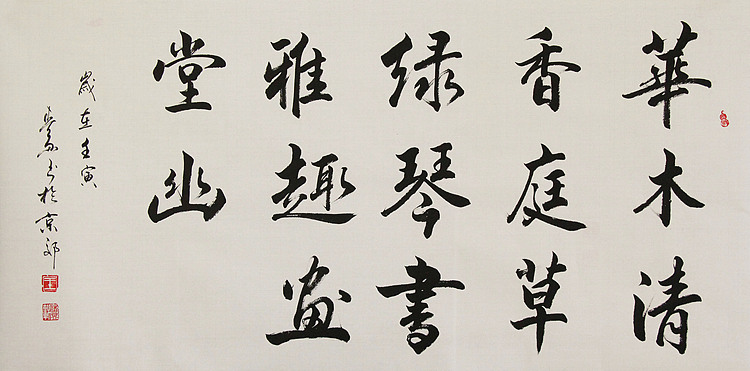 華木清
香庭草
绿琴書
雅趣画
堂幽
歲在壬寅
书於京郊